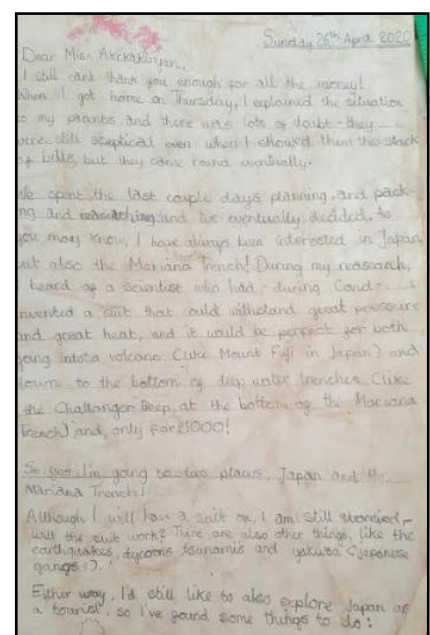 Sunday 26th April 2020
Dear Miss Akckakinyan,
I still cant thank you enough for all the money!
When I got home on Thursday, I explained the situation
to my parents and there was lots of doubt - they
were still sceptical even when I showed them the stack
of bills, but they came round eventually.
We spent the last couple days planning, and pack-
ing and researching and I've eventually decided. As
you may know, I have always been interested in Japan,
but also the Mariana Trench! During my reasearch,
I heard of a Scientist who had - during Covid -
invented a suit that could withstand great pressure
and great heat, and it would be perfect for both
going into a volcano (like Mount Fuji in Japan) and
down to the bottom of deep water trenches (like
the Challanger Deep, at the bottom of the Mariana
Trench) and, only for £1000!
So yes I'm going to two places, Japan and the
Mariana Trench!
Although I will have a suit on, I am still worried -
will the suit work? There are also other things, like the
earthquakes, tycoons tsunamis and yakuba (japanese
gangs).
Either way, I'd still like to also explore Japan as
a tourist, so I've found some things to do: